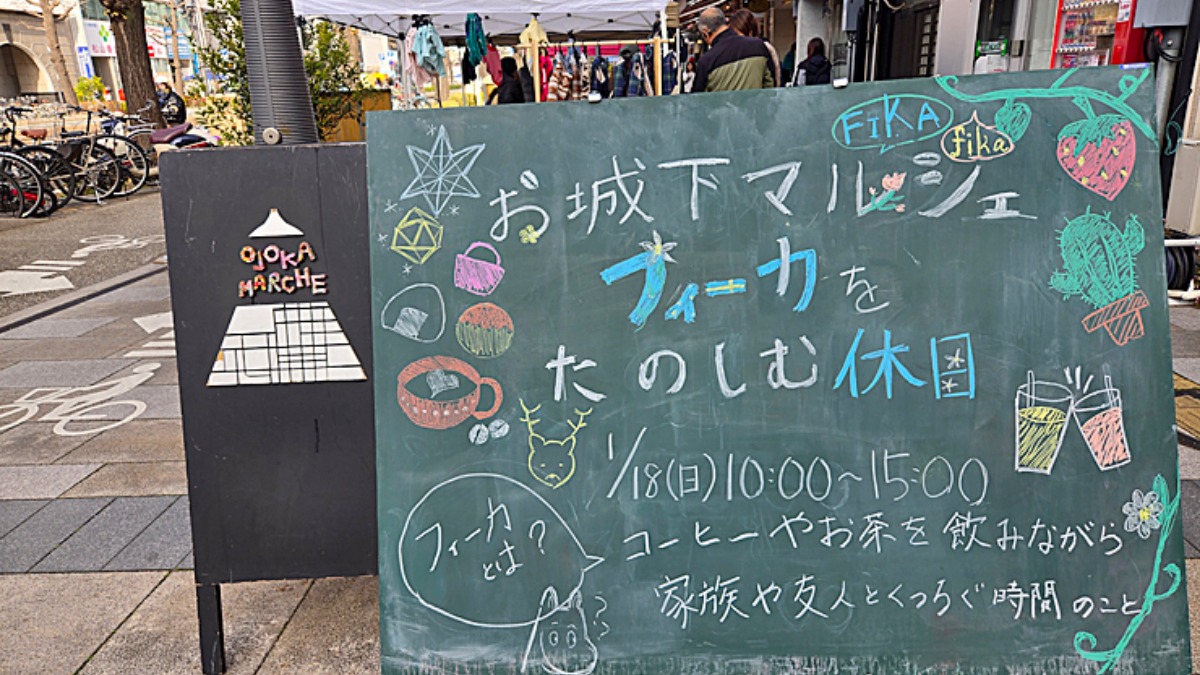 OJOKA
MARCHE
FIKA
fika
お城下マルシェ
フィーカを
たのしむ休日
1/18(日)10:00~15:00
フィーカ
とは?
コーヒーやお茶を飲みながら
家族や友人とくつろぐ時間のこと
??